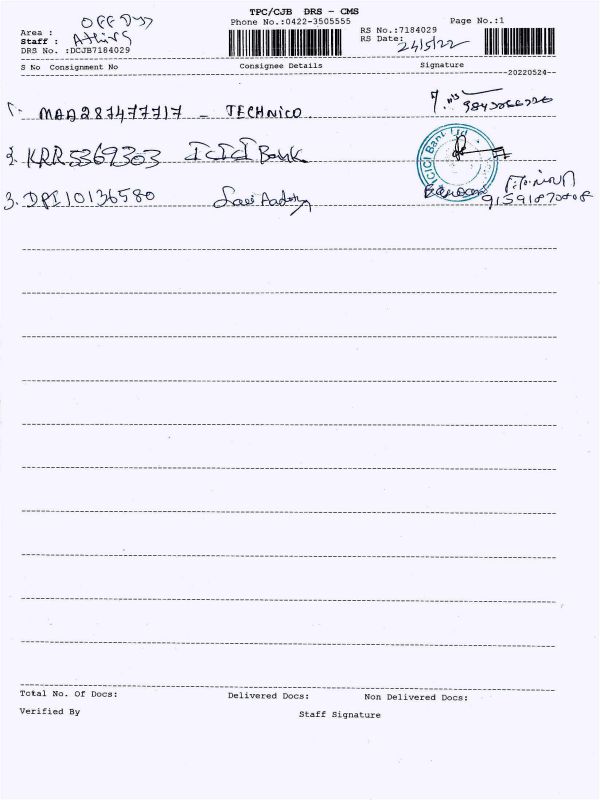 TPC/CJB DRS - CMS
Phone No.:0422-3505555 Page No.:1
Area : OFF
Staff : 
DRS No. :DCJB7184029
RS No.:7184029
RS Date: 24/5/22
S No Consignment No Consignee Details Signature
20220524
1. MAA287477717 - TECHNICO.
2. KRR5369303 ICICI Bank
ICICI Bank Ltd.
3. DPI10136580
Total No. Of Docs: Delivered Docs: Non Delivered Docs:
Verified By Staff Signature